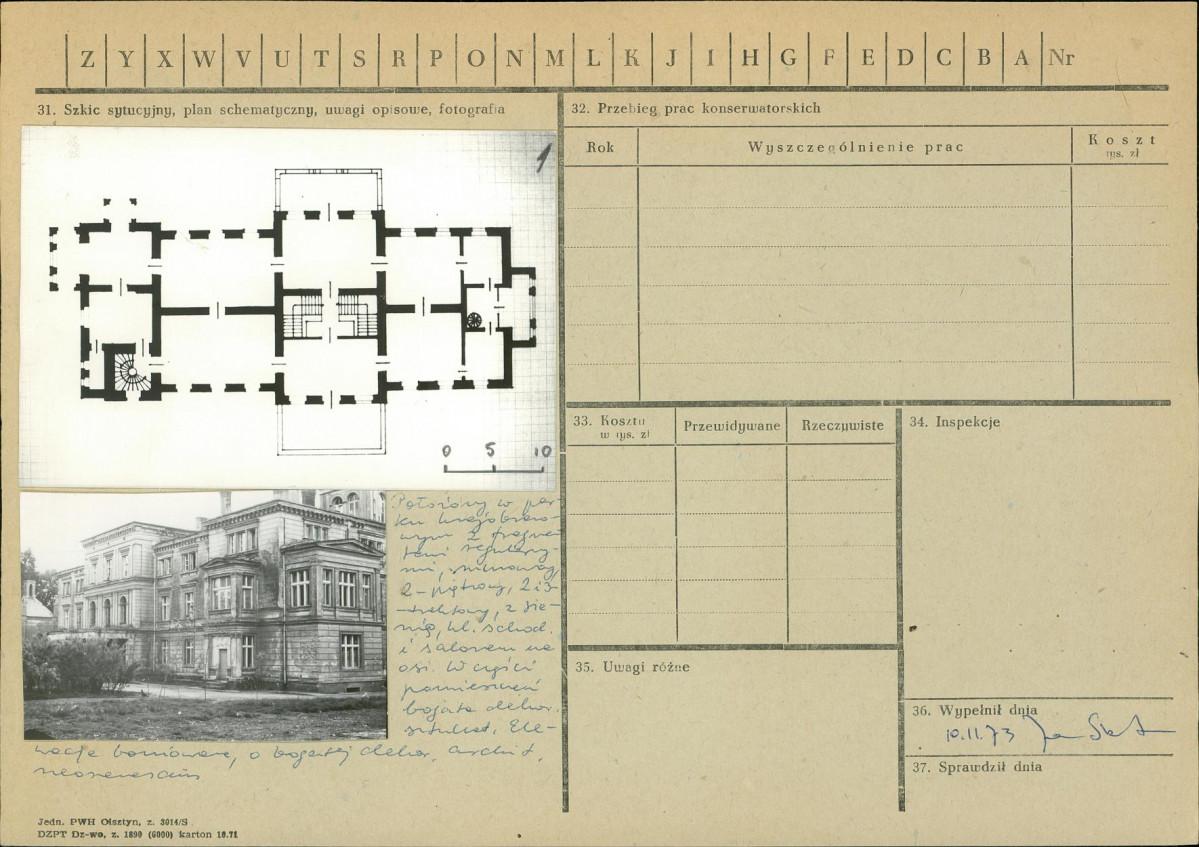 Z Y X W V U T S R P O N M L K J I H G F E D C B A Nr
31. Szkic sytucyjny, plan schematyczny, uwagi opisowe, fotografia
1
0 5 10
Położony w par-
ku krajobrazo-
wym z fragmen-
tami regularny-
mi, murowany,
2-piętrowy, 2 i 3
-traktowy, z sie-
nią, kl. schod.
i salonem na
osi. W części
pomieszczeń
bogata dekor.
sztukat. Ele-
wacje boniowane, o bogatej dekor. archit.
neorenesans
Jedn. PWH Olsztyn, z. 3014/S
DZPT Dz-wo, z. 1890 (6000) karton 10.71
32. Przebieg prac konserwatorskich
Rok Wyszczególnienie prac Koszt
tys. zł
33. Koszty
w tys. zł
Przewidywane Rzeczywiste
34. Inspekcje
35. Uwagi różne
36. Wypełnił dnia
10.11.73
37. Sprawdził dnia